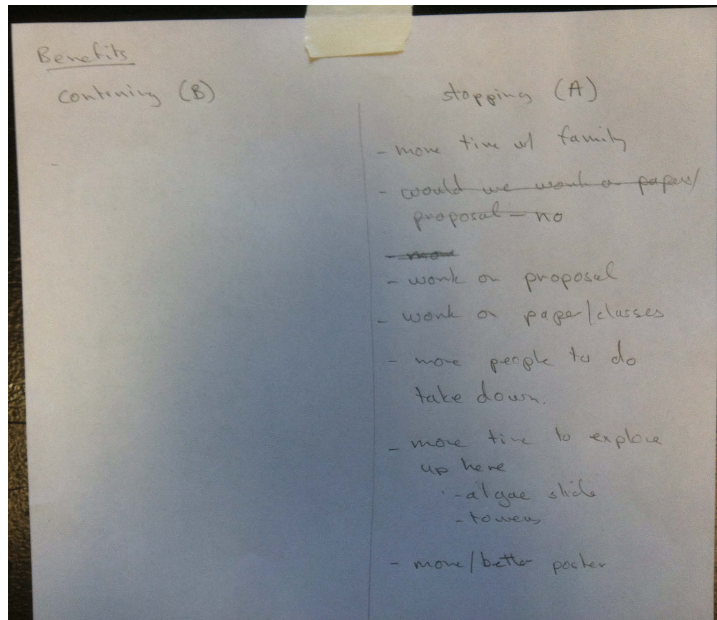 Benefits
continuing (B)
stopping (A)
- more time w/ family
- would we work on paper/
proposal - no
- mor
- work on proposal
- work on paper/classes
- more people to do
take down.
- more time to explore
up here
- algae slide
- towers
- more/better poster